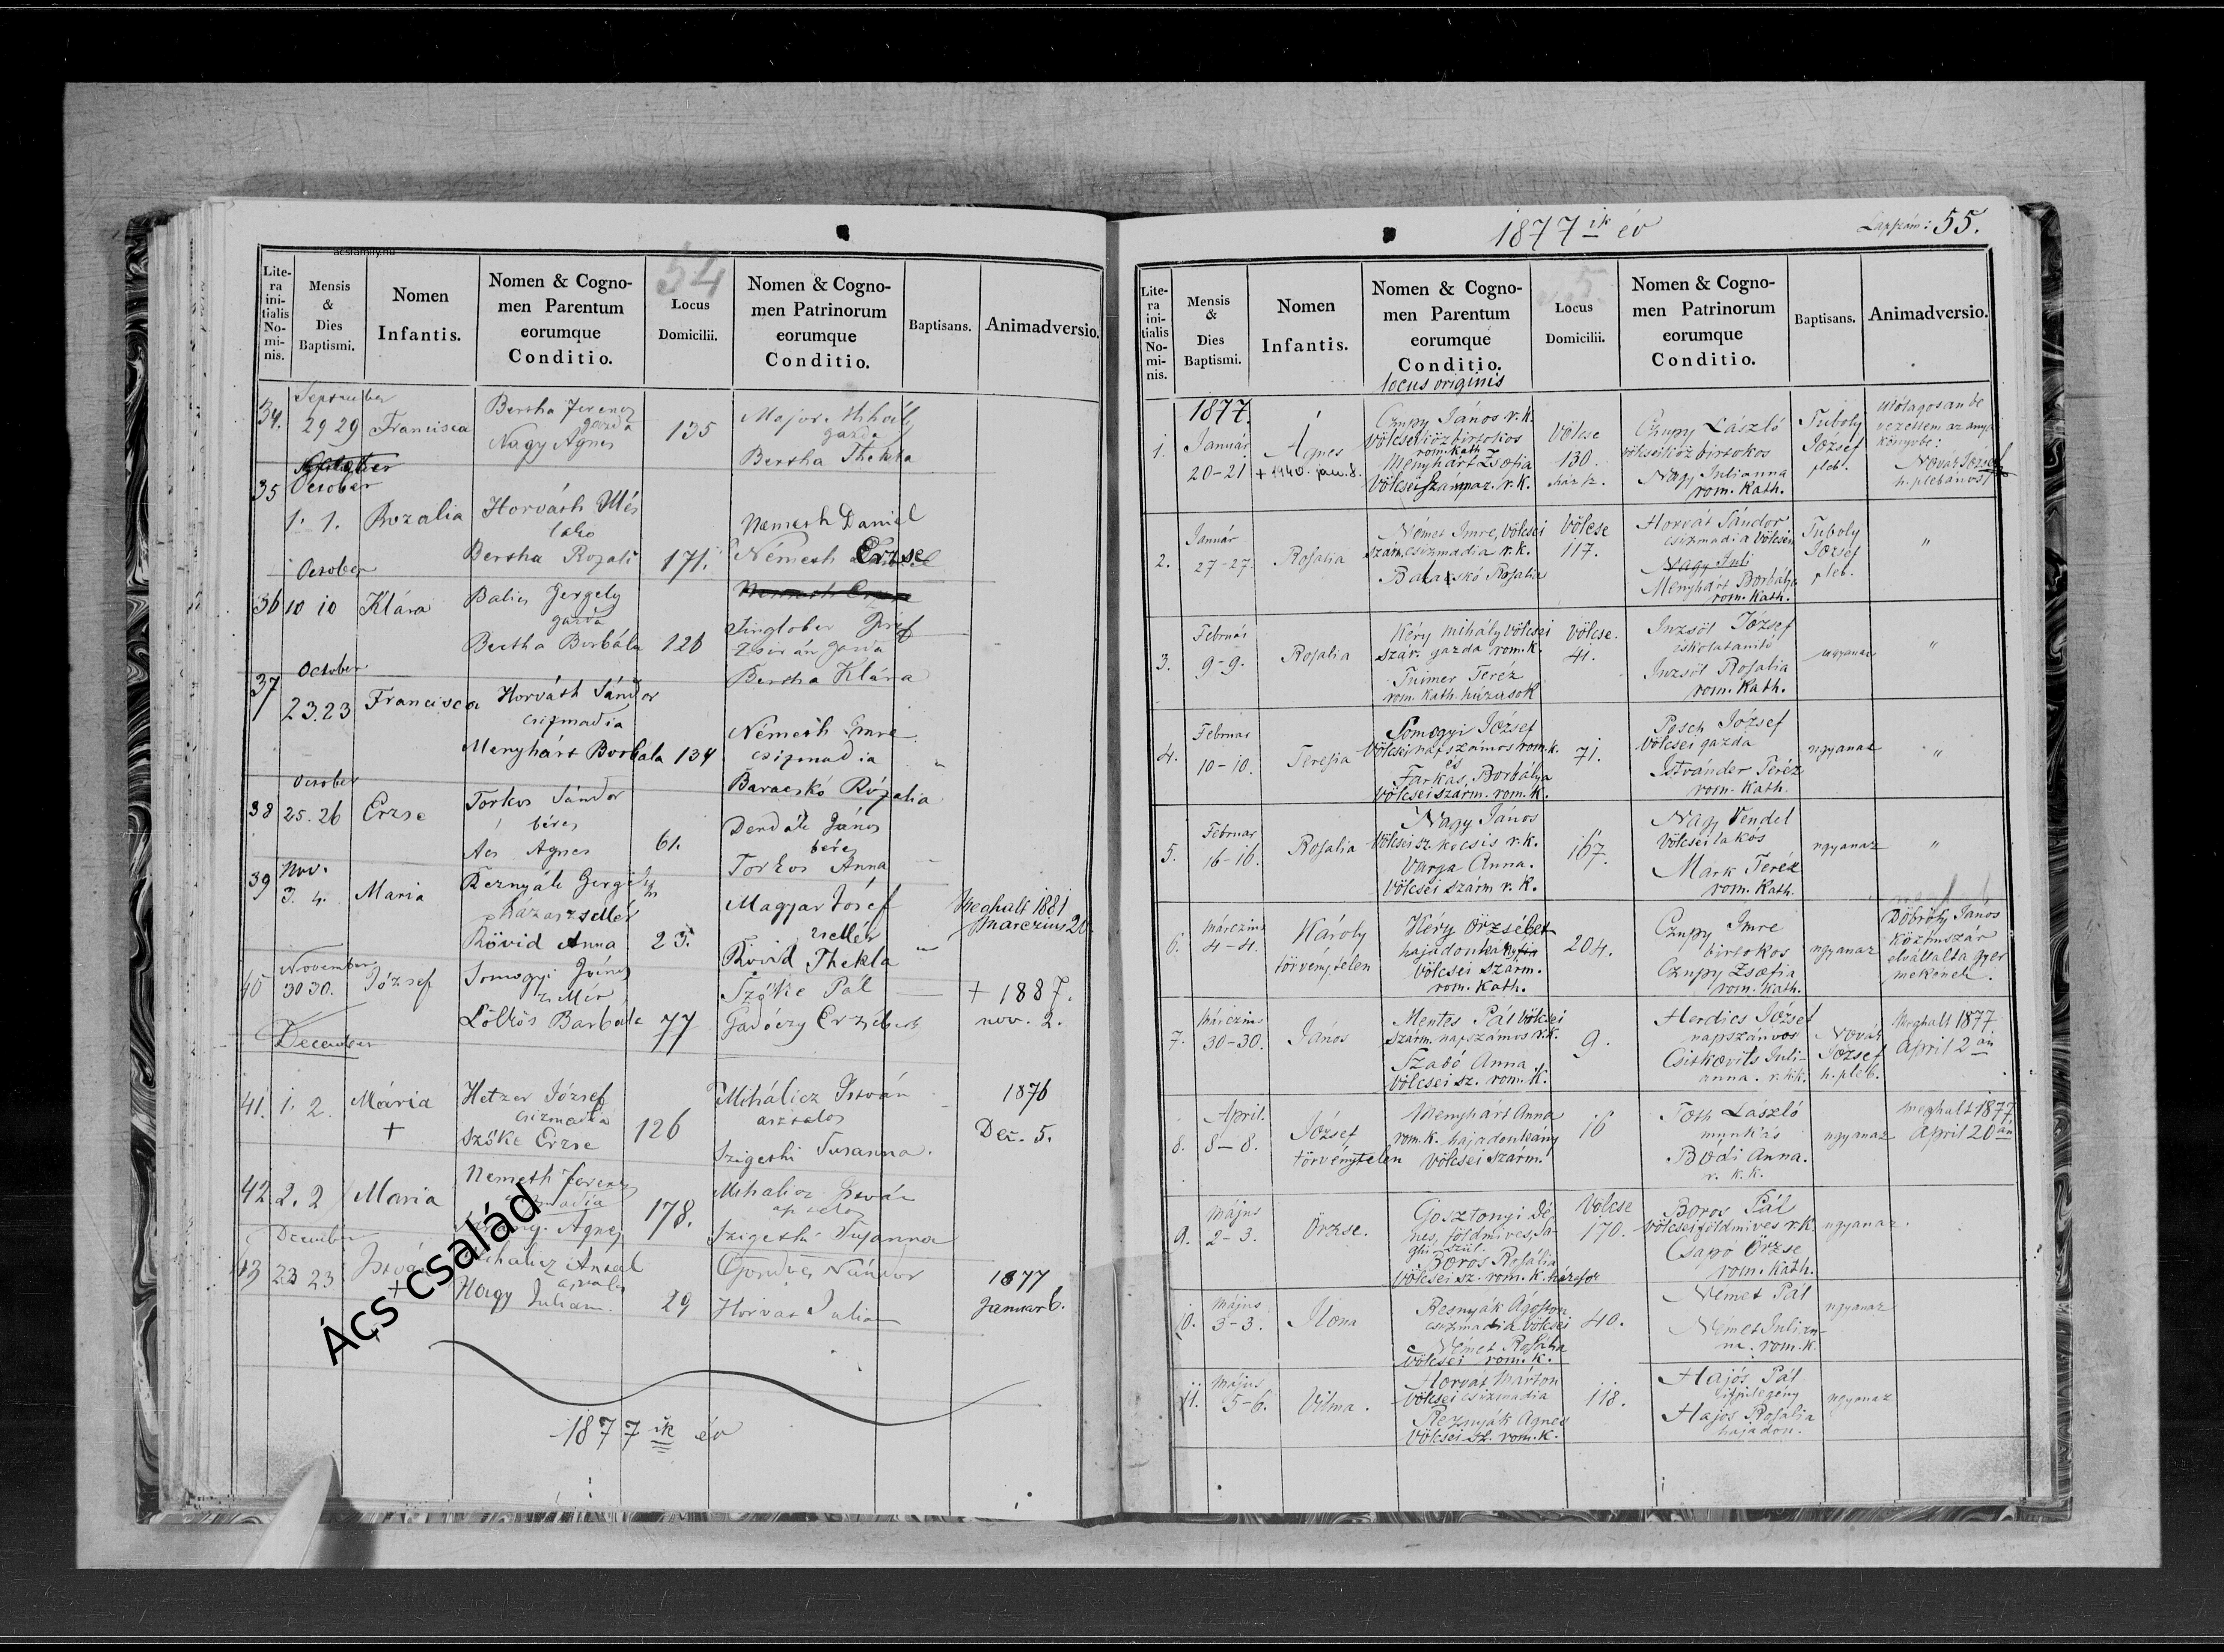 acsfamily.hu
54
Lite-
ra
ini-
tialis
No-
mi-
nis.
Mensis
&
Dies
Baptismi.
Nomen
Infantis.
Nomen & Cogno-
men Parentum
eorumque
Conditio.
Locus
Domicilii.
Nomen & Cogno-
men Patrinorum
eorumque
Conditio.
Baptisans.
Animadversio.
September
34. 29 29 Francisca
Bertha Ferencz
gazda
Nagy Agnes
135
Major Mihály
gazda
Bertha Thekla
October
35
1. 1. Rozalia
Horváth Illés
Bertha Rozali
171.
Nemeth Daniel
Németh Erzse
October
36 10 10 Klára
Balics Gergely
gazda
Bertha Borbála
126
Singlober
gazda
Bertha Klára
October
37
23. 23 Francisca
Horváth Sándor
csizmadia
Menyhárt Borbala 134
Németh Imre
csizmadia
Baracskó Rózalia
October
38 25. 26 Erzse
Torkos Sándor
béres
Ács Agnes
61.
János
béres
Torkos Anna
Nov.
39 3. 4. Maria
Reznyák
Rövid Anna 23.
Magyar József
zsellér
Rövid Thekla
Meghalt 1881
Marczius 20.
November
40 30 30. József
Somogyi
zsellér
Borbála 77
Szőke Pál
Erzsébet
+ 1887.
nov. 2.
December
41. 1. 2. Mária
+
Hetzer József
csizmadia
Szőke Erzse
126
Mihálicz István
asztalos
Szigethi Susanna.
1876
Dec. 5.
42 2. 2 Maria
Nemeth Ferencz
Agnes
178.
Mihalicz István
Szigethi Susanna
December
43 23 23 István
+
Mihalicz Antal
asztalos
Nagy Julian.
29
Nándor
Horvat Julia
1877
Januar 6.
Ács család
1877 ik év
1877 ik év
Lapszám: 55.
Lite-
ra
ini-
tialis
No-
mi-
nis.
Mensis
&
Dies
Baptismi.
Nomen
Infantis.
Nomen & Cogno-
men Parentum
eorumque
Conditio.
locus originis
Locus
Domicilii.
Nomen & Cogno-
men Patrinorum
eorumque
Conditio.
Baptisans.
Animadversio.
1877.
1. Január
20-21
Ágnes
+ 1940. jan. 8.
Czupy János r. k.
völcsei közbirtokos
rom. Kath
Menyhárt Zsófia
Völcsei szarmaz. r. k.
Völcse
130.
ház sz.
Czupy László
völcsei közbirtokos
Nagy Julianna
rom. Kath.
Tuboly
József
pleb.
utólagosan be
vezettem az anya
könyvbe:
Novák József
h. plebános
2. Január
27-27.
Rosalia
Német Imre, Völcsei
szárm. csizmadia r. k.
Baracskó Rosalia
Völcse
117.
Horvát Sándor
csizmadia Völcsein
Nagy Juli
Menyhárt Borbála
rom. Kath.
Tuboly
József
pleb.
"
3. Február
9-9.
Rosalia
Kéry Mihály völcsei
szár. gazda rom. k.
Teréz
rom. Kath. házasok
Völcse.
41.
Inzsöl József
iskolatanitó
Inzsöl Rosalia
rom. Kath.
ugyanaz
"
4. Februar
10-10.
Teresia
Somogyi József
Völcsei napszámos rom. k.
és
Farkas Borbálya
völcsei szárm. rom. k.
71.
Pesch József
Völcsei gazda
Istvánder Teréz
rom. Kath.
ugyanaz
"
5. Februar
16-16.
Rosalia
Nagy János
Völcsei sz. kocsis r. k.
Varga Anna.
Völcsei szárm r. k.
167.
Nagy Vendel
Völcsei lakós
Mark Teréz
rom. Kath.
ugyanaz
"
6. Márczius
4-4.
Károly
törvénytelen
Kéry Örzsébet
hajadon
Völcsei szarm.
rom. Kath.
204.
Czupy Imre
birtokos
Czupy Zsofia
rom. Kath.
ugyanaz
Döbröly János
közhuszár
elvállalta gyer
mekének.
7. Márczius
30-30.
János
Mentes Pál völcsei
szárm. napszámos r. k.
Szabó Anna.
Völcsei sz. rom. K.
9.
Herdics József
napszámos
Csiskovits Juli-
anna. r. k. k.
Novák
József
h. pleb.
Meghalt 1877
April 2 án
8. April.
8-8.
József
törvénytelen
Menyhárt Anna
rom. k. hajadonleány
Völcsei szárm.
16
Toth László
munkás
Bődi Anna.
r. k. k.
ugyanaz
meghalt 1877
April 20 án
9. Május
2-3.
Örzse.
Gosztonyi Dé-
nes, földmives, Sá-
ghi szül.
Boros Rosália
Völcsei sz. rom. k. házasok
Völcse
170.
Boros Pál
völcsei földmives r. k.
Csapó Örzse
rom. Kath.
ugyanaz.
10. Május
3-3.
Ilona
Resnyák Ágoston
csizmadia völcsei
Német Rosália
völcsei rom. k.
40.
Német Pál
Német Julian-
na. rom. k.
ugyanaz
11. Május
5-6.
Vilma.
Horvat Márton
völcsei csizmadia
Reznyák Agnes
Völcsei sz. rom. k.
118.
Hajós Pál
ifjulegény
Hajos Rosalia
hajadon.
ugyanaz